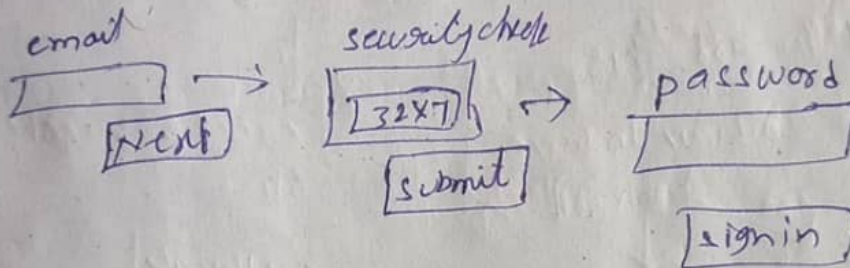 email
Next
security check
32X7
submit
password
signin